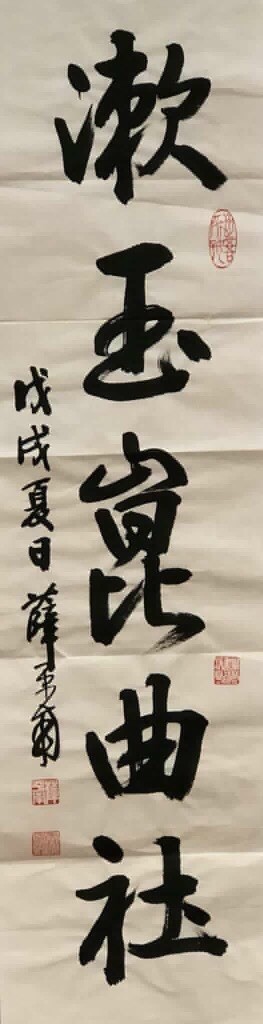 漱玉崑曲社
戊戌夏日薛